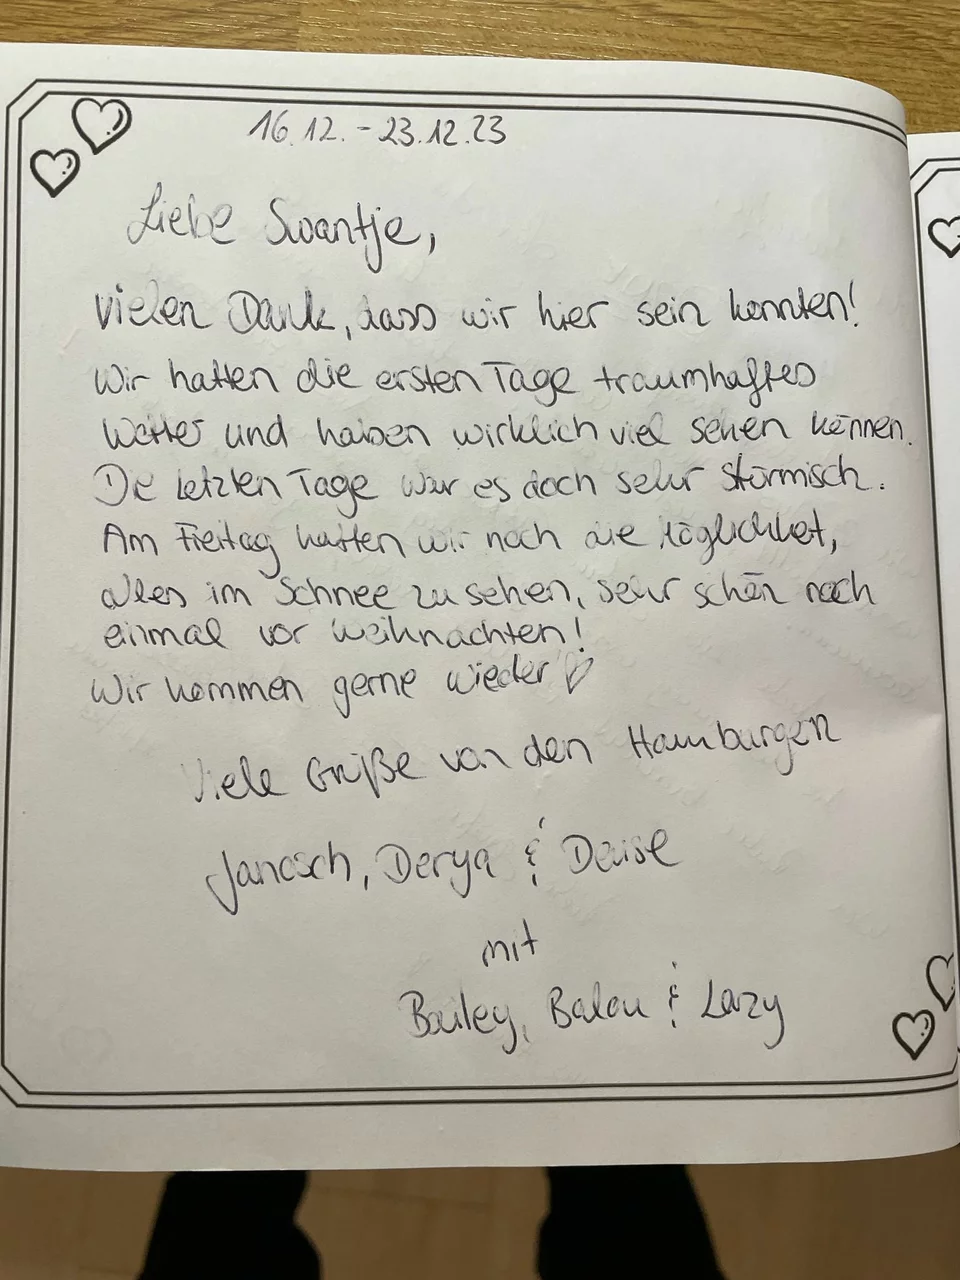 16.12. - 23.12.23
Liebe Swantje,
vielen Dank, dass wir hier sein konnten!
Wir hatten die ersten Tage traumhaftes
Wetter und haben wirklich viel sehen können.
Die letzten Tage war es doch sehr stürmisch.
Am Freitag hatten wir noch die Möglichkeit,
alles im Schnee zu sehen, sehr schön noch
einmal vor Weihnachten!
Wir kommen gerne wieder ♡
Viele Grüße von den Hamburgern
Janosch, Derya & Denise
mit
Bailey, Balou & Lazy